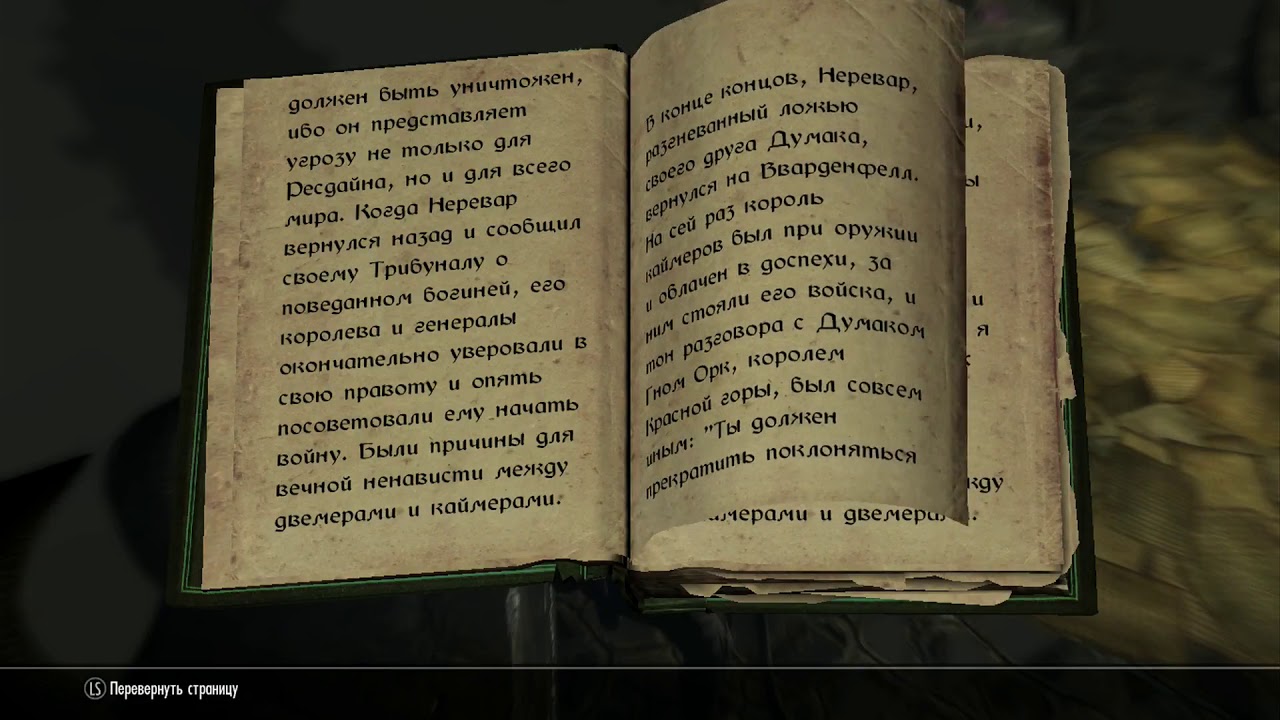 должен быть уничтожен,
ибо он представляет
угрозу не только для
Ресдайна, но и для всего
мира. Когда Неревар
вернулся назад и сообщил
своему Трибуналу о
поведанном богиней, его
королева и генералы
окончательно уверовали в
свою правоту и опять
посоветовали ему начать
войну. Были причины для
вечной ненависти между
двемерами и каймерами.
В конце концов, Неревар,
разгневанный ложью
своего друга Думака,
вернулся на Вварденфелл.
На сей раз король
каймеров был при оружии
и облачен в доспехи, за
ним стояли его войска, и
тон разговора с Думаком
Гном Орк, королем
Красной горы, был совсем
иным: "Ты должен
прекратить поклоняться
и
я
и двемерами.
LS Перевернуть страницу